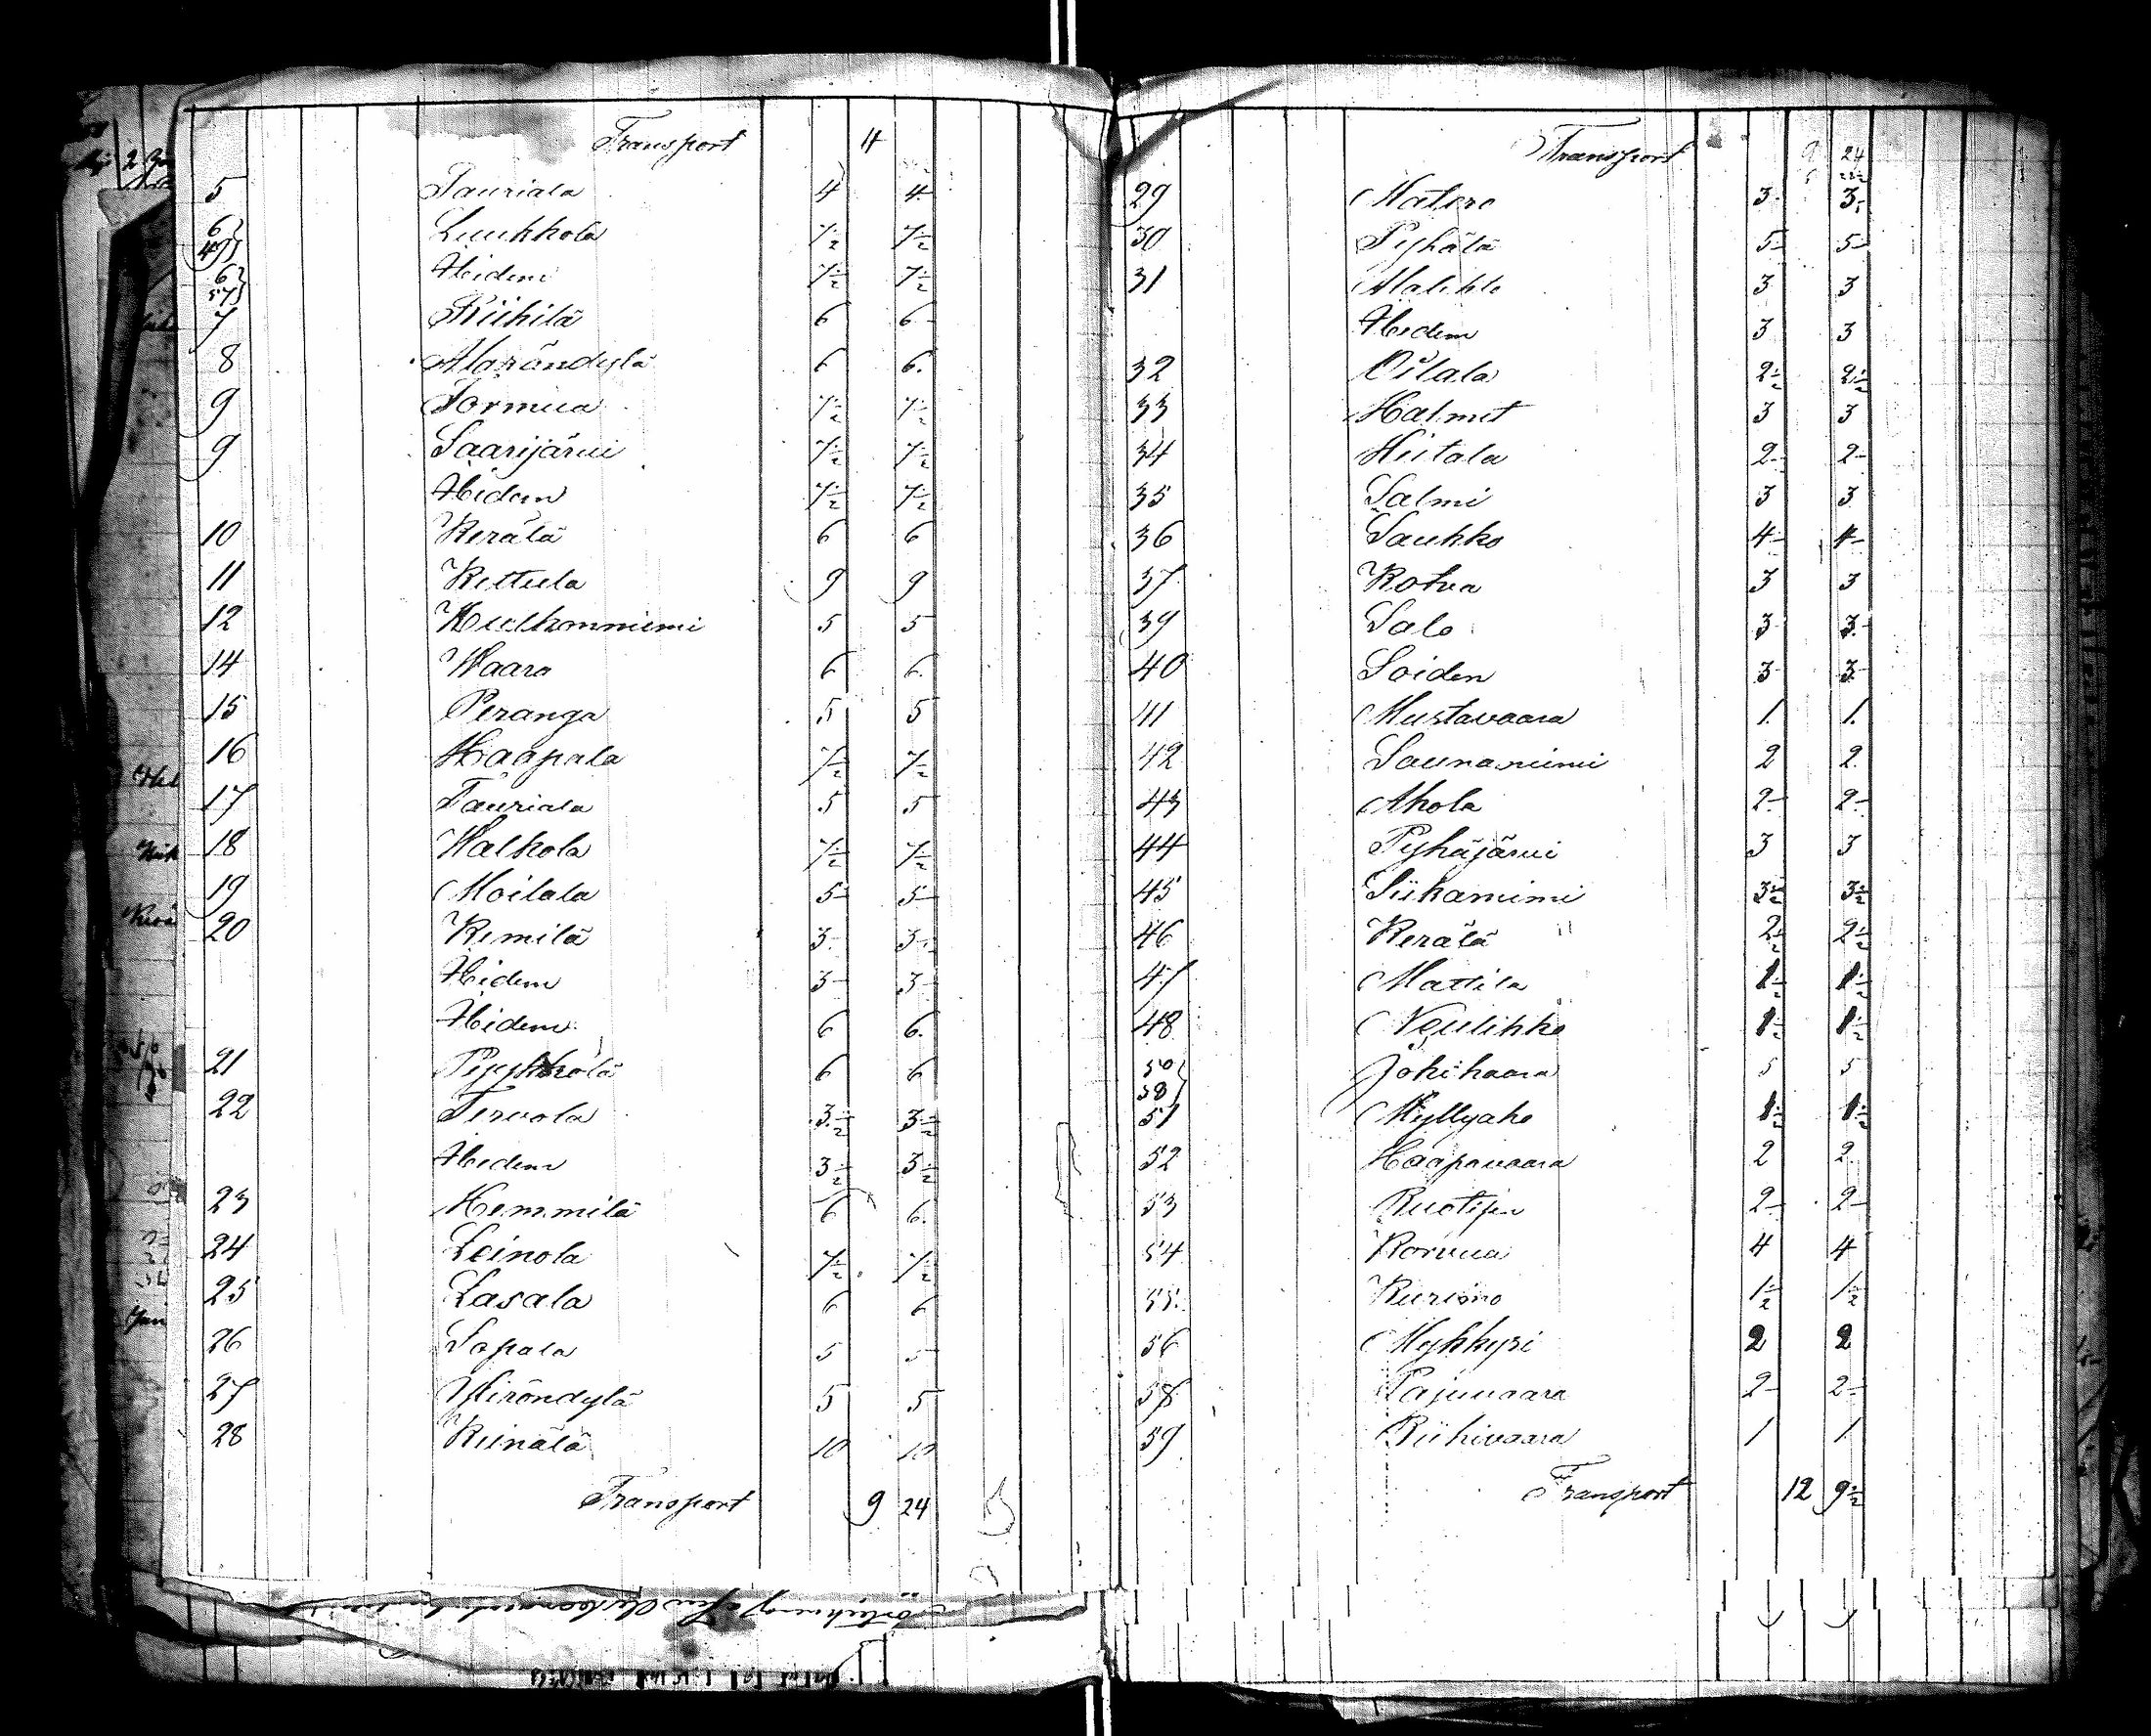 Transport 4
5 Tauriala 4 4
6 49 Luukkola 7½ 7½
6 57 Ibidem 7½ 7½
7 Riihilä 6 6
8 Alaröndylä 6 6.
9 Sormua 7½ 7½
9 Saarijärvi 7½ 7½
Ibidem 7½ 7½
10 Kerälä 6 6
11 Kettula 9 9
12 Kulkonniemi 5 5
14 Waara 6 6
15 Peranga 5 5
16 Haapala 7½ 7½
17 Tauriala 5 5
18 Walkola 7½ 7½
19 Moilala 5 5
20 Kemilä 3 3
Ibidem 3 3
Ibidem 6 6.
21 Pyykkölä 6 6
22 Tervola 3½ 3½
Ibidem 3½ 3½
23 Hemmilä 6 6.
24 Leinola 7½ 7½
25 Lasala 6 6
26 Sopala 5 5
27 Yliröndylä 5 5
28 Keinälä 10 10
Transport 9 24
Transport 9 24
29 Matero 3 3
30 Pyhälä 5 5
31 Mäläkkö 3 3
Ibidem 3 3
32 Oilala 2½ 2½
33 Halmet 3 3
34 Hietala 2 2
35 Salmi 3 3
36 Saukko 4 4
37 Kotva 3 3
39 Salo 3 3
40 Soiden 3 3
41 Mustavaara 1. 1.
42 Saunaniemi 2 2
43 Ahola 2 2
44 Pyhäjärvi 3 3
45 Siikaniemi 3½ 3½
46 Kerälä 2½ 2½
47 Mattila 1½ 1½
48 Neulikko 1½ 1½
50 58 Jokihaara 5 5
51 Myllyaho 1½ 1½
52 Haapavaara 2 2
53 2 2
54 Korvua 4 4
55. Kurimo 1½ 1½
56 Mykkyri 2 2
58 Pajuvaara 2 2
59 Riihivaara 1 1
Transport 12 9½